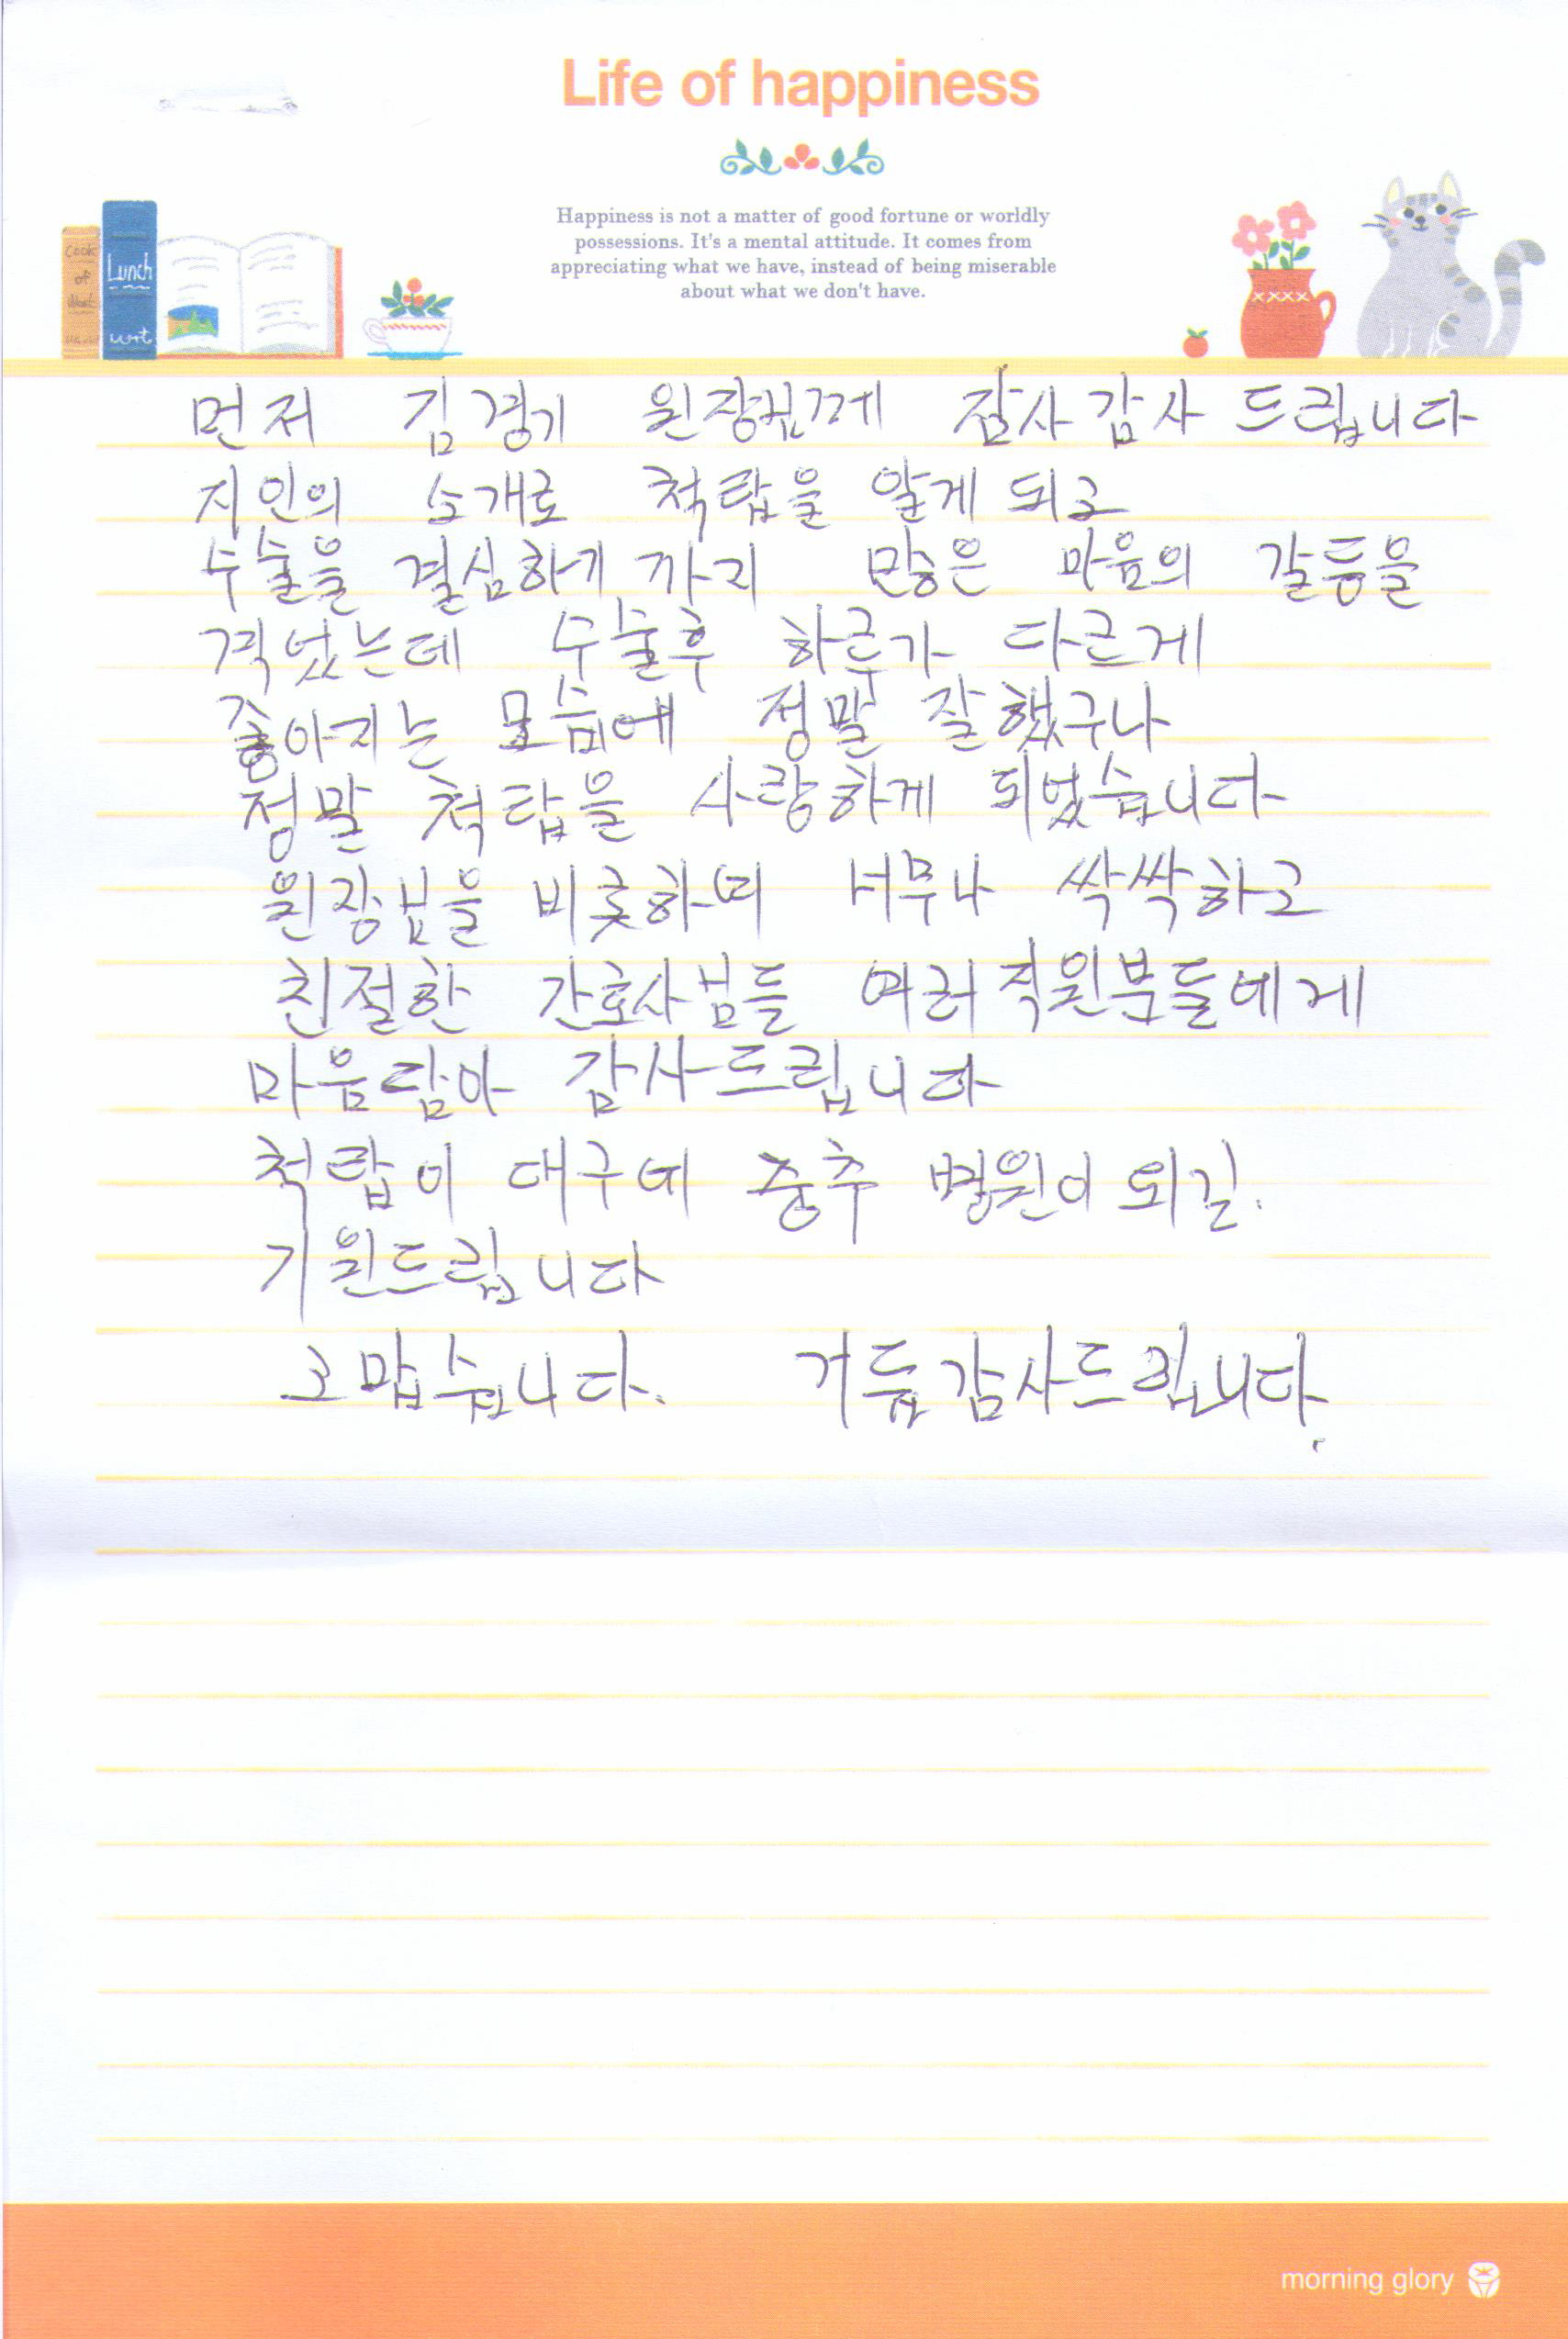 Life of happiness
Happiness is not a matter of good fortune or worldly
possessions. It's a mental attitude. It comes from
appreciating what we have, instead of being miserable
about what we don't have.
Cook
of
Lunch
먼저 김경기 원장님께 감사 드립니다
지인의 소개로 척탑을 알게 되고
수술을 결심하기 까지 많은 마음의 갈등을
격었는데 수술후 하루가 다르게
좋아지는 모습에 정말 잘했구나
정말 척탑을 사랑하게 되었습니다
원장님을 비롯하며 너무나 싹싹하고
친절한 간호사님들 여러직원분들에게
마음담아 감사드립니다
척탑이 대구에 중추 병원이 되길.
기원드립니다
고맙습니다. 거듭감사드립니다.
morning glory